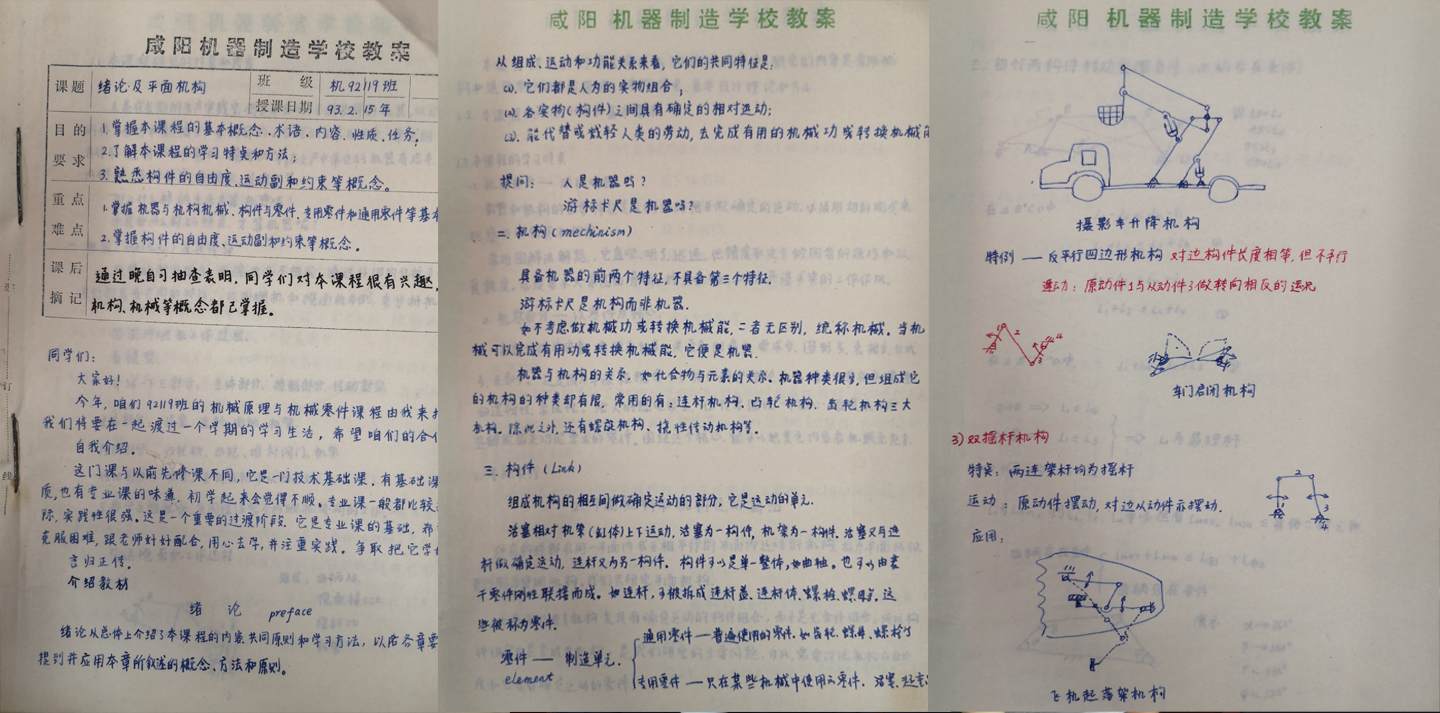 咸阳机器制造学校教案
课题 绪论及平面机构 班级 机92119班
授课日期 93.2.15年
目的要求 1.掌握本课程的基本概念、术语、内容、性质、任务;
2.了解本课程的学习特点和方法;
3.熟悉构件的自由度、运动副和约束等概念。
重点难点 1.掌握机器与机构机械、构件与零件、专用零件和通用零件等基本
2.掌握构件的自由度、运动副和约束等概念。
课后摘记 通过晚自习抽查表明,同学们对本课程很有兴趣,
机构、机械等概念都已掌握。
同学们:
大家好!
今年,咱们92119班的机械原理与机械零件课程由我来
我们将要在一起渡过一个学期的学习生活,希望咱们的合
自我介绍。
这门课与以前先修课不同,它是一门技术基础课,有基础课
质,也有专业课的味道,初学起来会觉得不顺。专业课一般都比较
际,实践性很强。这是一个重要的过渡阶段,它是专业课的基础,希
克服困难,跟老师好好配合,用心去学,并注重实践。争取把它学
言归正传。
介绍教材
绪 论 preface
绪论从总体上介绍了本课程的内容共同原则和学习方法,以后各章要
提到并应用本章所叙述的概念、方法和原则。
订
线
咸阳 机器制造学校教案
从组成、运动和功能关系来看,它们的共同特征是:
(1). 它们都是人为的实物组合;
(2). 各实物(构件)之间具有确定的相对运动;
(3). 能代替或减轻人类的劳动,去完成有用的机械功或转换机械
提问:— 人是机器吗?
游标卡尺是机器吗?
二. 机构(mechinism)
具备机器的前两个特征,不具备第三个特征.
游标卡尺是机构而非机器.
如不考虑做机械功或转换机械能,二者无区别,统称机械。当机
械可以完成有用功或转换机械能,它便是机器.
机器与机构的关系,如化合物与元素的关系.机器种类很多,但组成它
的机构的种类却有限,常用的有:连杆机构、凸轮机构、齿轮机构三大
机构。除此之外,还有螺旋机构、挠性传动机构等。
三. 构件(Link)
组成机构的相互间做确定运动的部分,它是运动的单元.
活塞相对机架(缸体)上下运动,活塞为一构件,机架为一构件.活塞又与连
杆做确定运动,连杆又为另一构件. 构件可以是单一整体,如曲轴。也可以由若
干零件刚性联接而成。如连杆,可被拆成连杆盖、连杆体、螺栓、螺母等,这
些被称为零件.
零件 — 制造单元.
element
通用零件—普遍使用的零件.如齿轮、螺母、螺栓钉
专用零件—只在某些机械中使用的零件. 活塞、
咸阳 机器制造学校教案
摄影车升降机构
特例 — 反平行四边形机构 对边构件长度相等,但不平行
运动:原动件1与从动件3做转向相反的运动
2
3
车门启闭机构
3)双摇杆机构
特点:两连架杆均为摇杆
运动:原动件摆动,对边从动件亦摆动.
2
1
3
4
应用:
飞机起落架机构